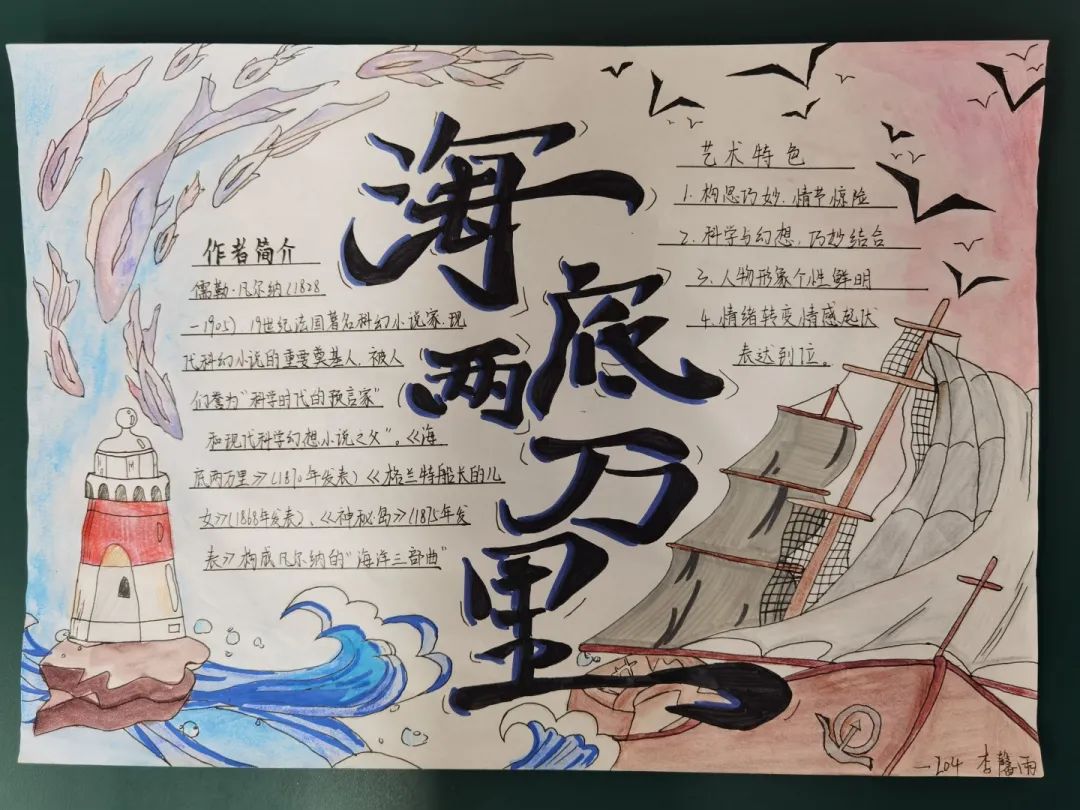 海底两万里
作者简介
儒勒·凡尔纳(1828
—1905)，19世纪法国著名科幻小说家，现
代科幻小说的重要奠基人，被人
们誉为“科学时代的预言家”
和现代科学幻想小说之父”。《海
底两万里》(1870年发表)《格兰特船长的儿
女》(1868年发表)、《神秘岛》(1875年发
表》构成凡尔纳的“海洋三部曲”
艺术特色
1.构思巧妙，情节惊险
2.科学与幻想，巧妙结合
3.人物形象个性鲜明
4.情绪转变情感起伏
表达到位。
一204 李馨雨